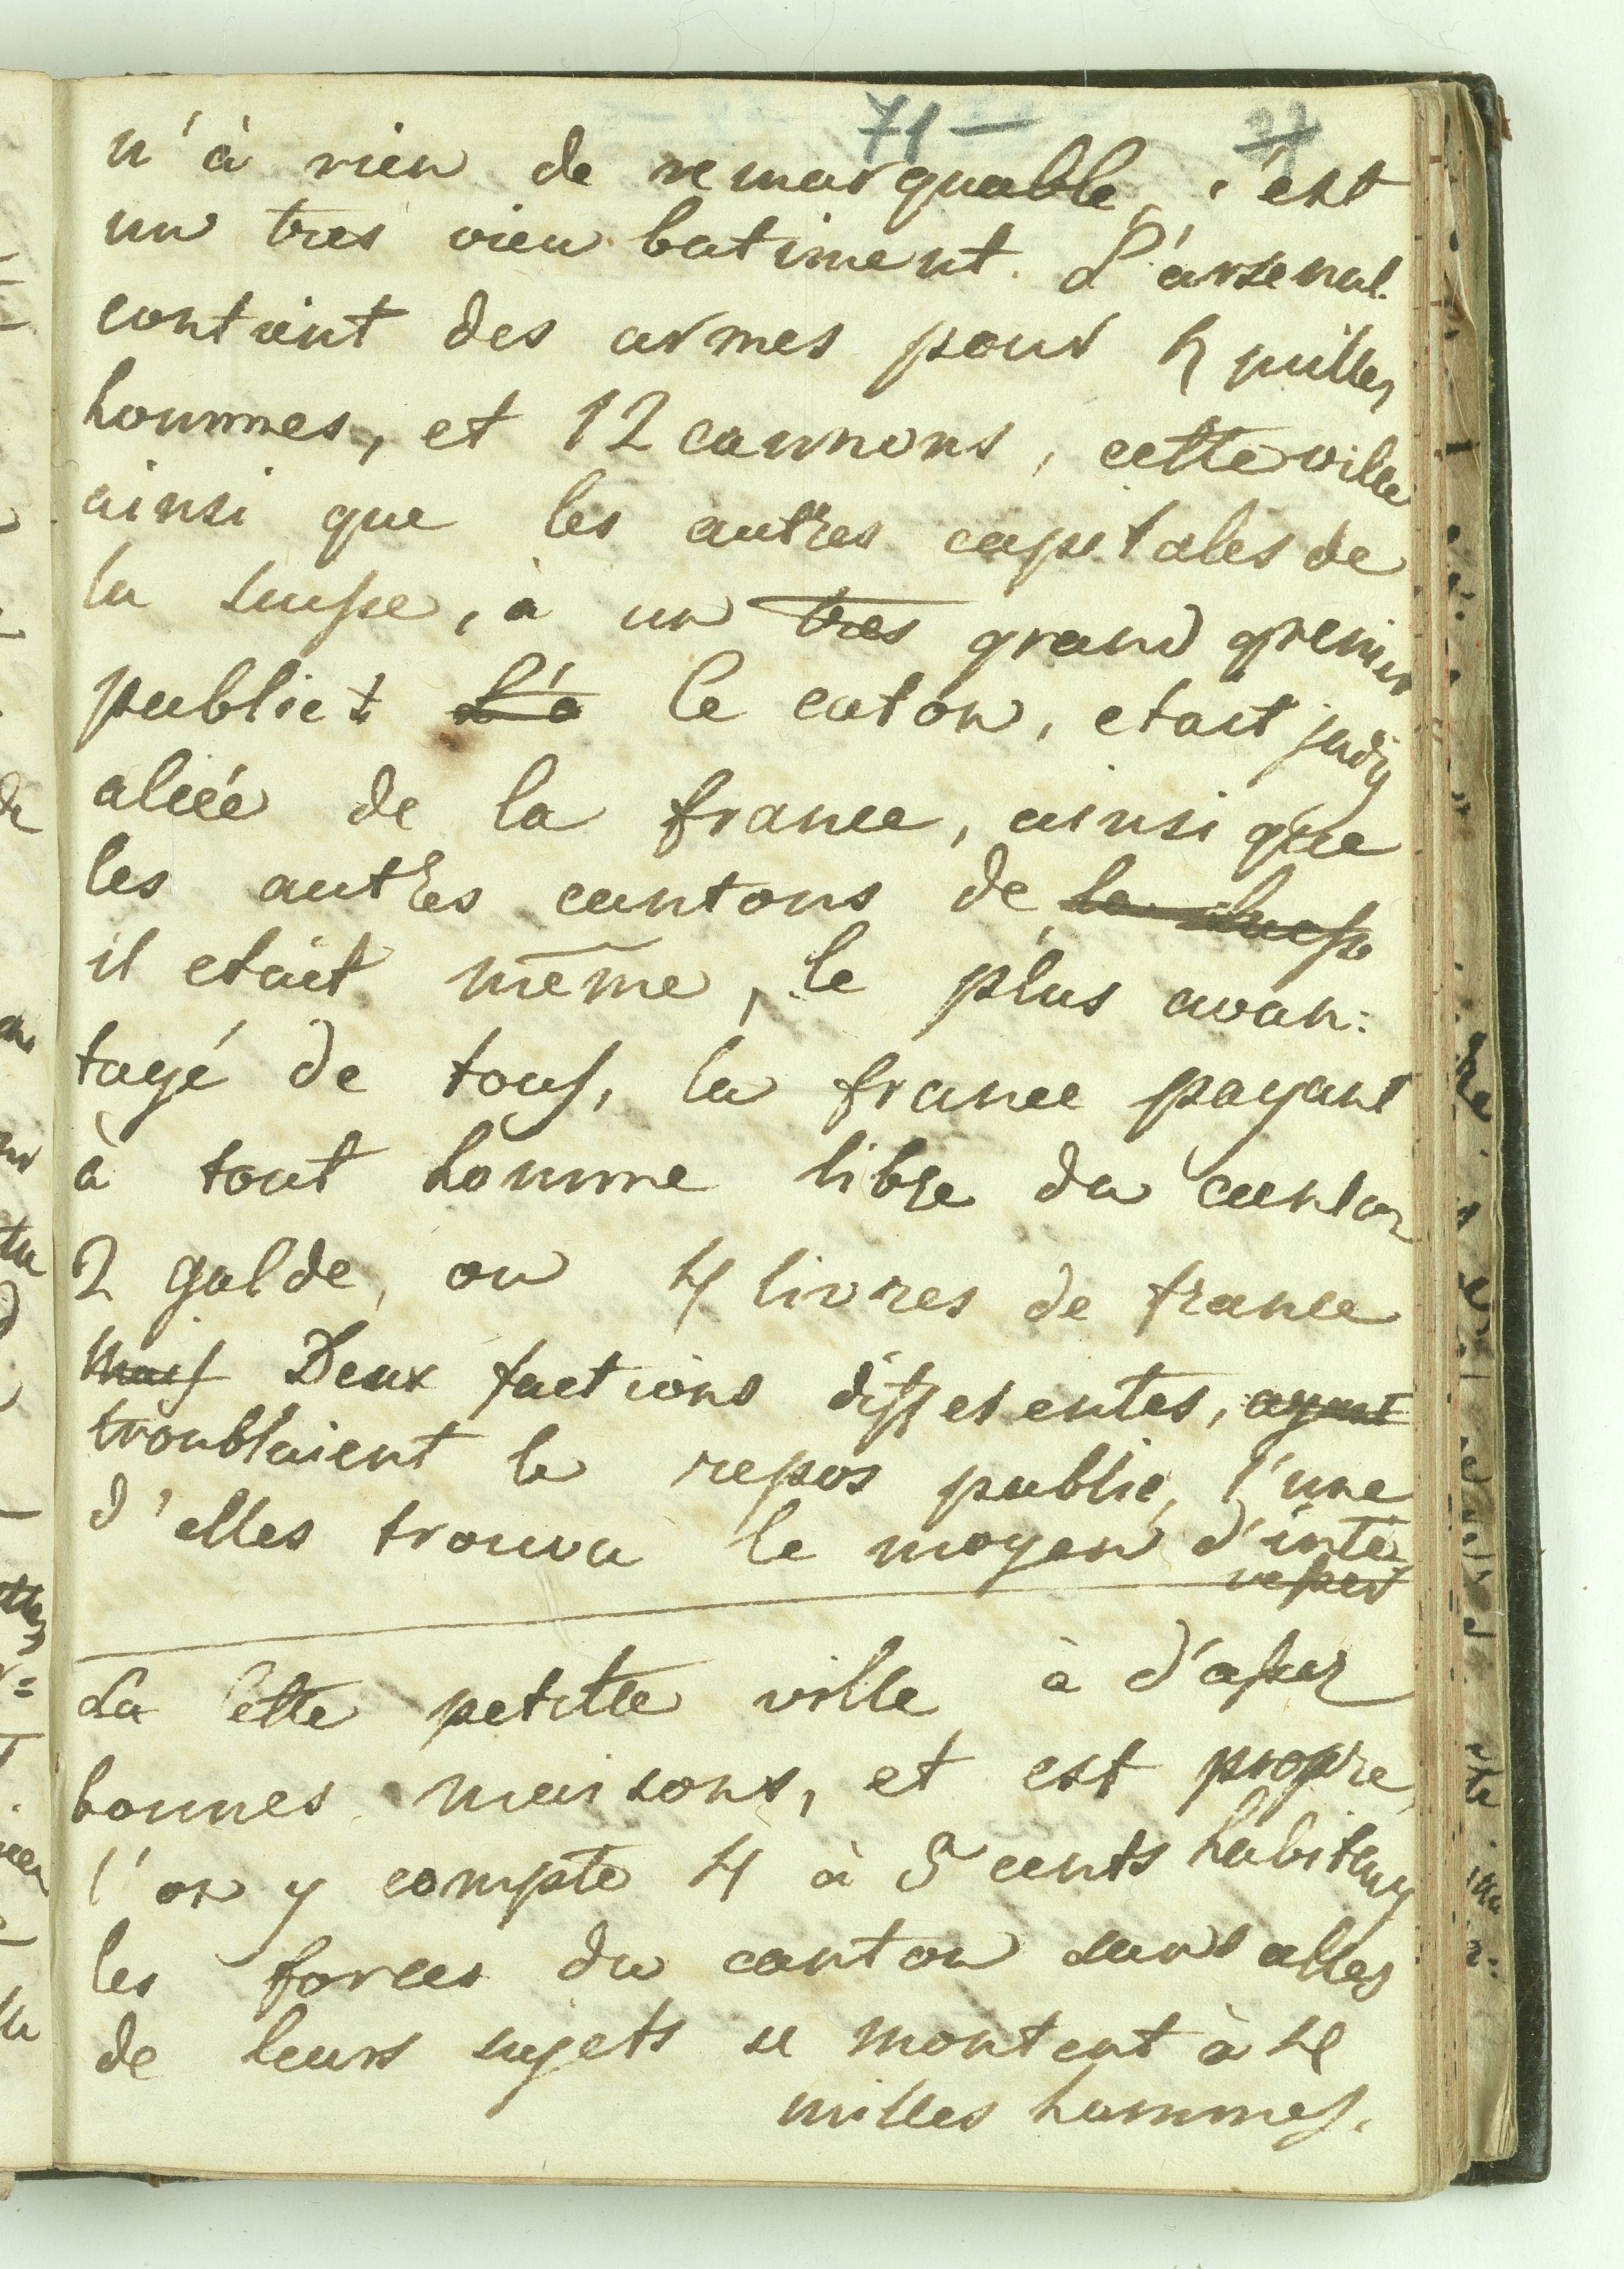 71 —
77
n'à rien de remarquable, c'est
un tres vieu batiment. L'arsenal
contient des armes pour 4 milles
hommes, et 12 cannons, cette ville
ainsi que les autres capitales de
la suisse, à un tres grand grenier
publict L'a le caton, etait jadis
aliée de la france, ainsi que
les autres cantons de la suisse
il etait même, le plus avan:
tagé de tous, la france payant
à tout homme libre du canton
2 gulde, ou 4 livres de france
Mais Deux factions differentes, ayant
troublaient le repos public, l'une
d'elles trouva le moyen d'inté
resser
La Cette petitte ville à d'assez
bonnes maisons, et est propre,
l'on y compte 4 à 5 cents habitans
les forces du canton sans celles
de leurs sujets se montent à 4
milles hommes.